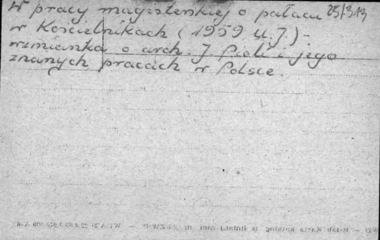 W pracy magisterskiej o pałacu 25/3.13
w Kościelnikach (1959 U.J.) -
wzmianka o arch. J Pioli i jego
znanych pracach w Polsce.